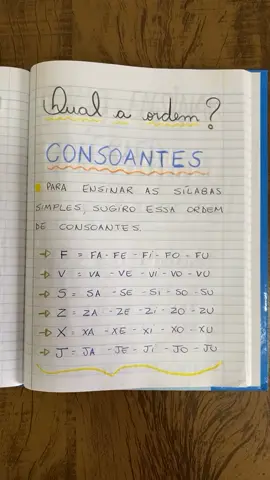 Qual a ordem?
CONSOANTES
PARA ENSINAR AS SÍLABAS
SIMPLES, SUGIRO ESSA ORDEM
DE CONSOANTES.
→ F = FA - FE - Fi - FO - FU
→ V = VA - VE - Vi - VO - VU
→ S = SA - SE - Si - SO - SU
→ Z = ZA - ZE - Zi - ZO - ZU
→ X = XA - XE - Xi - XO - XU
→ J = JA - JE - Ji - JO - JU